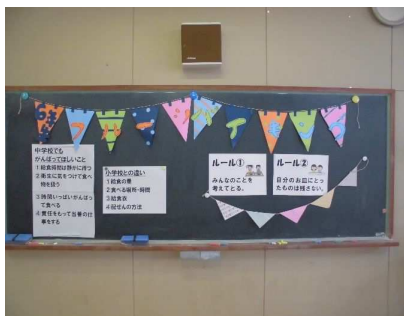 中学校でも
がんばってほしいこと
1給食時間は静かに待つ
2衛生に気をつけて食べ
物を扱う
3時間いっぱいがんばっ
て食べる
4責任をもって当番の仕
事をする
小学校との違い
1給食の量
2食べる場所・時間
3給食衣
4配ぜんの方法
ルール①
みんなのことを
考えてとる。
ルール②
自分のお皿にとっ
たものは残さない。